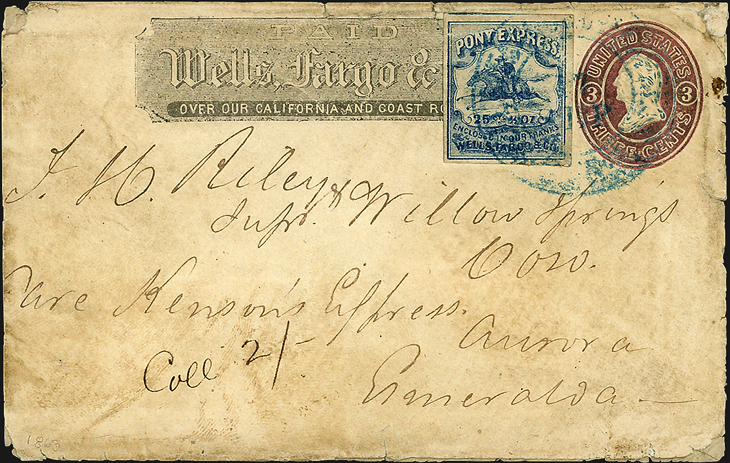 PAID
Wells, Fargo &
OVER OUR CALIFORNIA AND COAST RO
PONY EXPRESS.
25
ENCLOSED IN OUR FRANKS
WELLS, FARGO & CO.
UNITED STATES
3 3
THREE CENTS
J. H. Riley
Supt. Willow Springs
Co
Care Kenson's Express.
Aurora
Coll 2/-
Esmeralda
1863